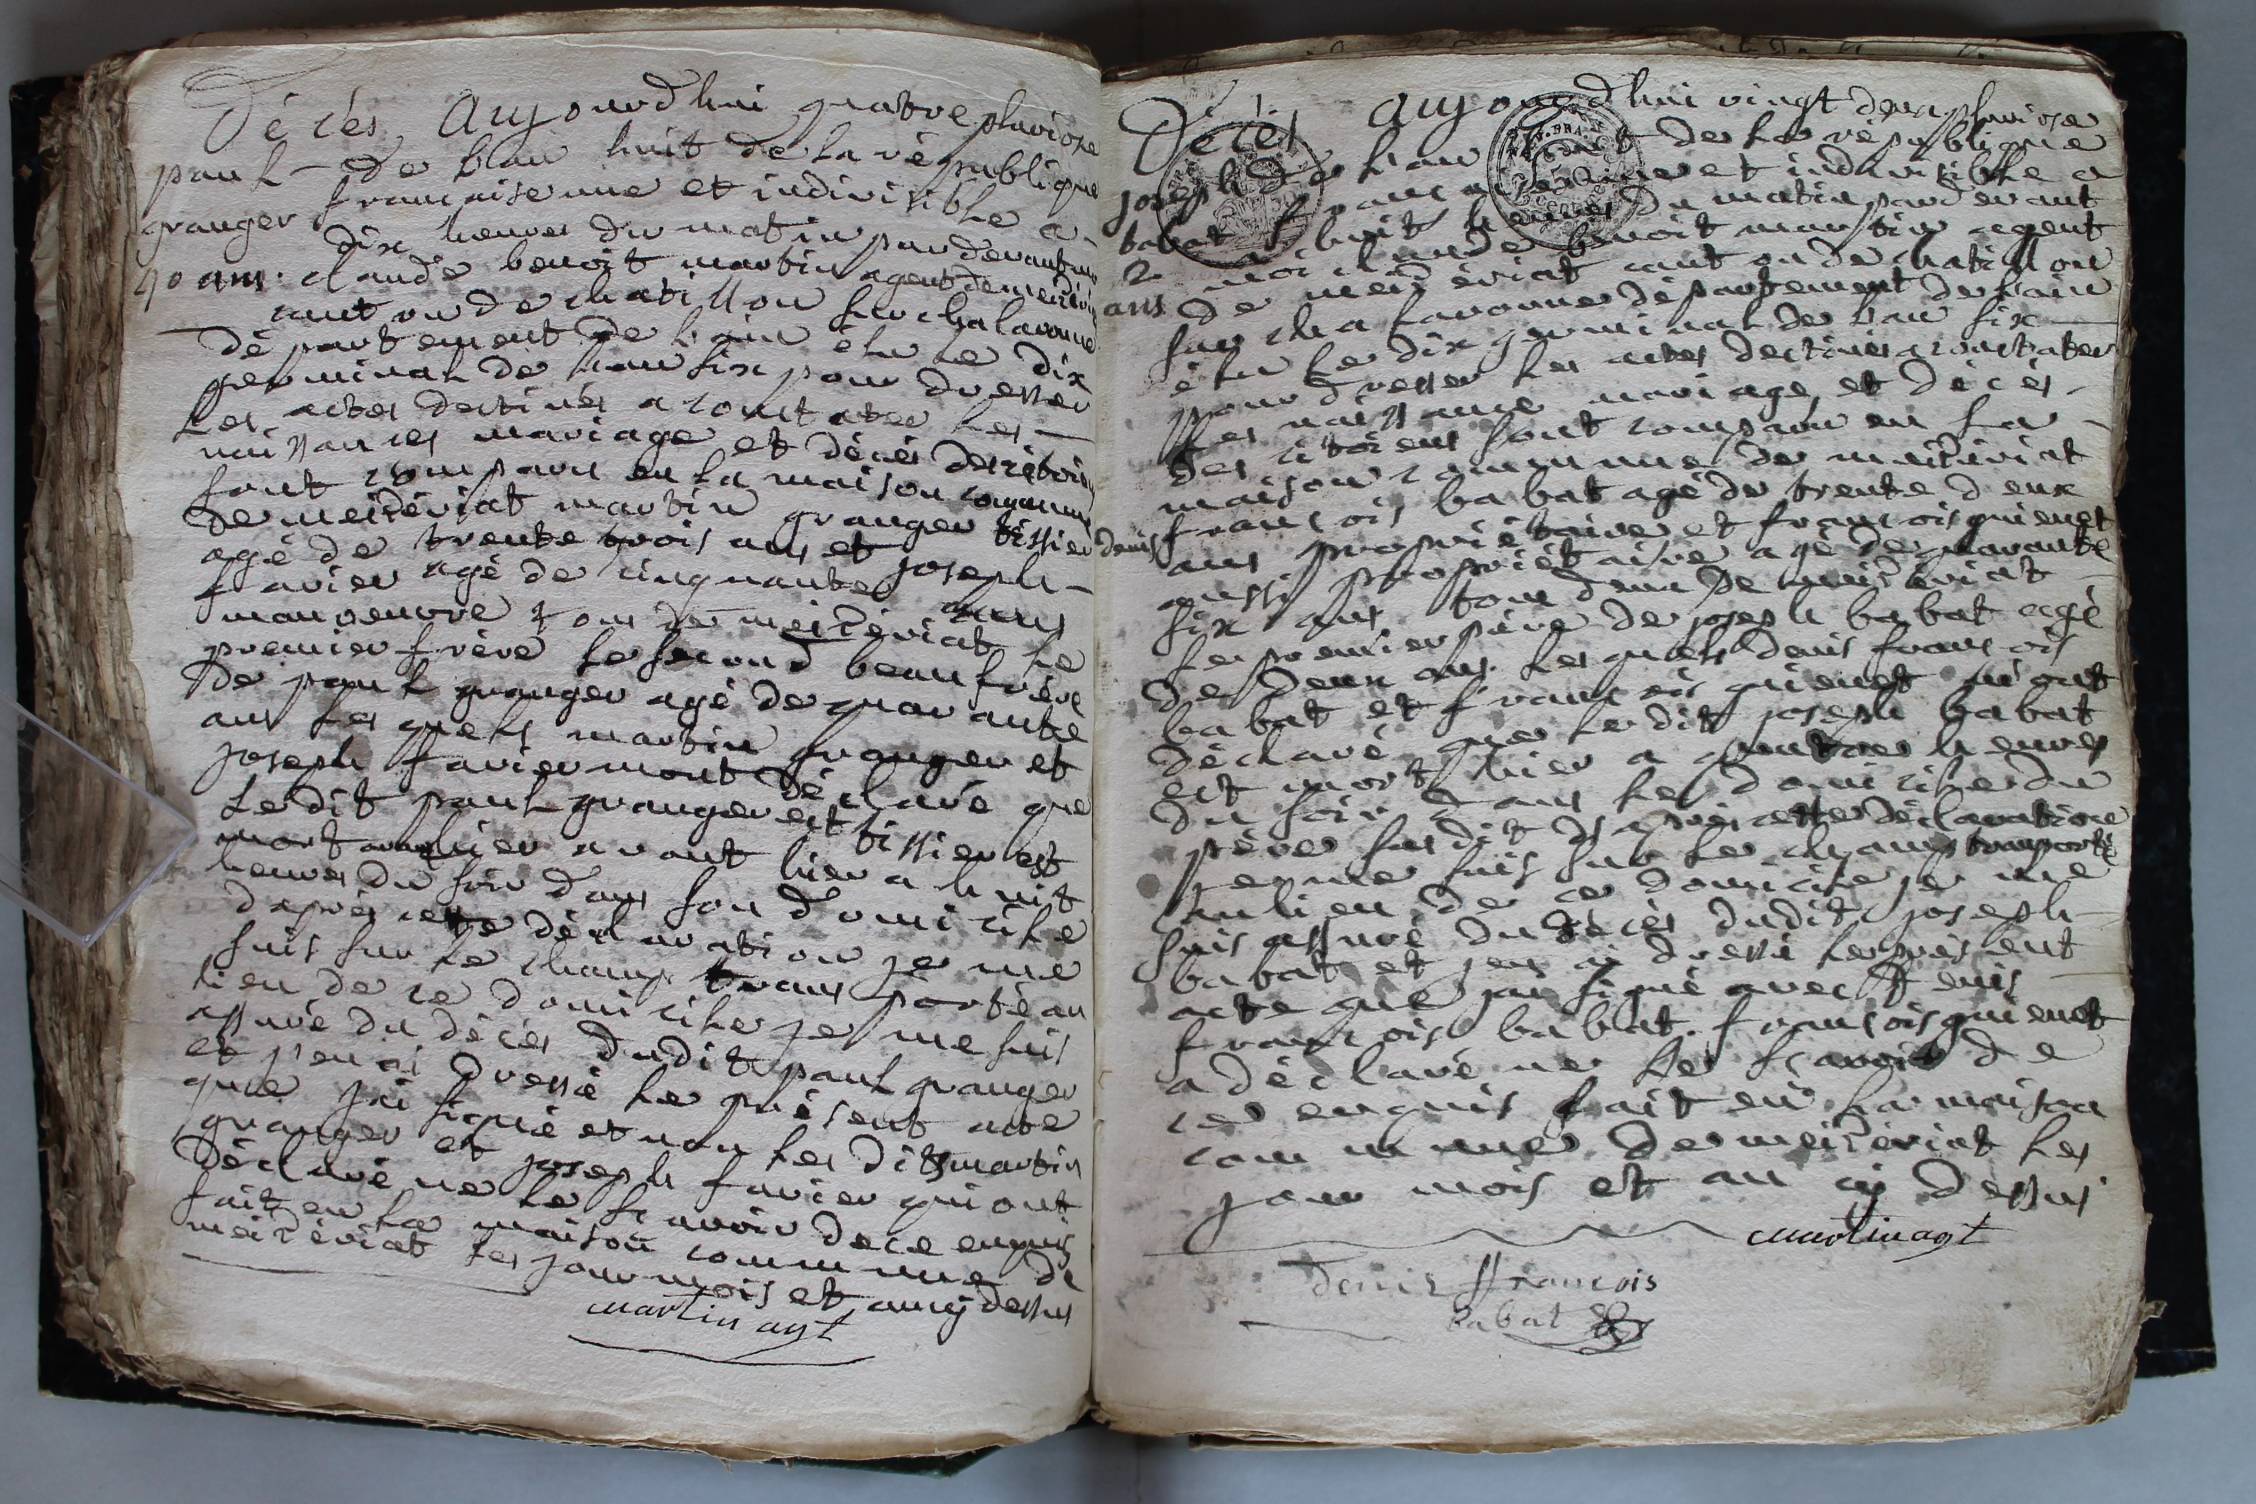 Décès aujourdhui quatre pluviose
paul - de lan huit de la république
granger française une et indivisible a
dix heures du matin par devant moi
40 ans. claude benoit martin agent de meizériat
canton de chatillon sur chalaronne
département de l'ain élu le dix
germinal de l'an six pour dresser
les actes destinés a constater les
naissances mariage et décès des citoiens
sont comparu en la maison commune
de meizériat martin granger tissier
agé de trente trois ans et joseph
favier agé de cinquante ans
manoeuvre tous de meizériat le
premier frère le second beau frère
de paul granger agé de quarante
ans les quels martin granger et
joseph favier mont déclaré que
le dit paul granger est tissier est
mort hier avant hier a huit
heures du soir dans son domicile
daprès cette déclaration je me
suis sur le champ transporté au
lieu de ce domicile je me suis
assuré du décès dudit paul granger
et jen ai dressé le présent acte
que jai signé et non les dits martin
granger et joseph favier qui ont
déclaré ne le scavoir de ce enquis
fait en la maison commune de
meizériat les jour mois et an cy dessus
martin agt
Décès aujourdhui vingt deux pluviose
joseph de lan huit de la république
babat française une et indivisible a
2 huit heures du matin par devant
ans moi claude benoit martin agent
de meizériat canton de chatillon
sur chalaronne département de l'ain
élu le dix germinal de l'an six
pour dresser les actes destinés a constater
les naissance mariage et décès
des citoiens sont comparu en la
maison commune de meizériat
denis françois babat agé de trente deux
ans propriétaire et françois quienet
aussi propriétaire agé de quarante
six ans tout deux de meizériat
le premier père de joseph babat agé
de deux ans les quels denis françois
babat et françois quienet m'ont
déclaré que le dit joseph babat
est mort hier a quatre heures
du soir dans le domicile du
père susdit d'après cette déclaration
je me suis sur le champ transporté
au lieu de ce domicile je me
suis assuré du décès dudit joseph
babat et jen ai dressé le présent
acte que jai signé avec denis
françois babat. françois quienet
a déclaré ne le scavoir de
ce enquis fait en la maison
commune de meizériat les
jour mois et an cy dessus
martin agt
Denis ffrancois
babat